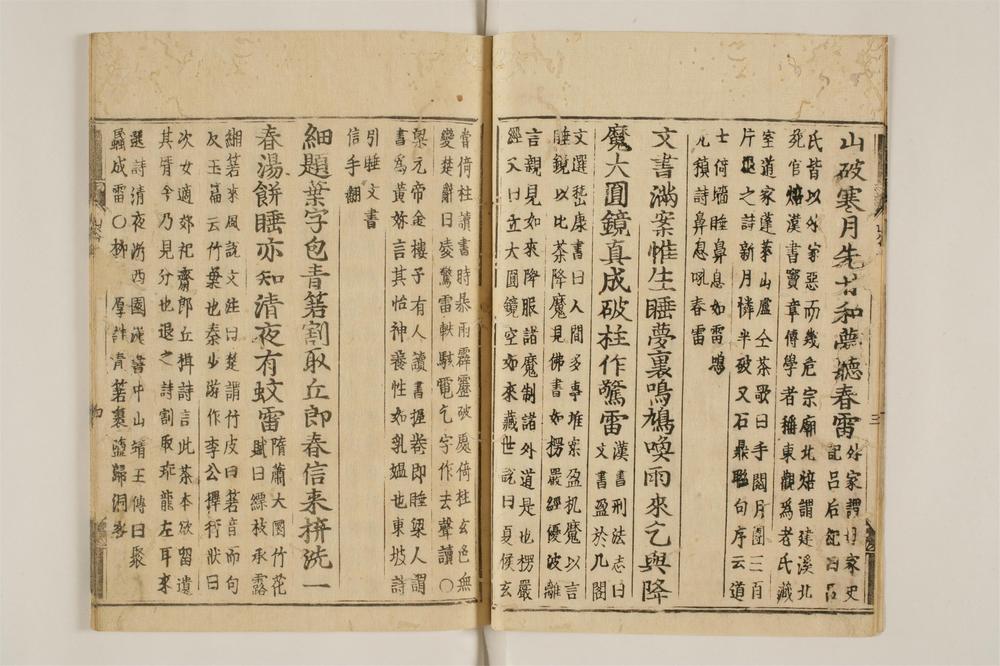 山破寒月先甘和麁聴春雷外家謂母家史
記呂后紀曰呂
氏皆以外家惡而幾危宗廟北焙謂建溪北
死官焙漢書竇章傳學者稱東觀爲老氏藏
室道家蓬萊山盧仝茶歌曰手閲月團三百
片退之詩新月憐半破又石鼎聮句序云道
士倚墻睡鼻息如雷鳴
元稹詩鼻息吼春雷
文書滿案惟生睡夢裏鳴鳩喚雨來乞與降
魔大圓鏡真成破柱作驚雷漢書刑法志曰
文書盈於几閣
文選嵇康書曰人間多事堆案盈机魔以言
睡鏡以比茶降魔見佛書如楞嚴經優波離
言親見如來降服諸魔制諸外道是也楞嚴
經又曰立大圓鏡空如來藏世説曰夏侯玄
甞倚柱讀書時暴雨霹靂破所倚柱玄色無
變楚辭曰凌驚雷軼駭電乞字作去聲讀〇
梁元帝金樓子有人讀書握卷即睡梁人謂
書爲黃妳言其怡神養性如乳媼也東坡詩
引睡文書
信手翻
細題葉字包青箬割取丘郎春信来拚洗一
春湯餅睡亦知清夜有蚊雷隋蕭大圜竹花
賦曰縹枝承露
緗箬来風説文注曰楚謂竹皮曰箬音而句
反玉篇云竹葉也秦少游作李公擇行状曰
次女適郊祀齋郎丘楫詩言此茶本欲留遺
其壻今乃見分也退之詩割取乖龍左耳來
選詩清夜游西園漢書中山靖王傳曰聚
蟁成雷〇柳 厚詩青箬裹鹽歸洞客
三